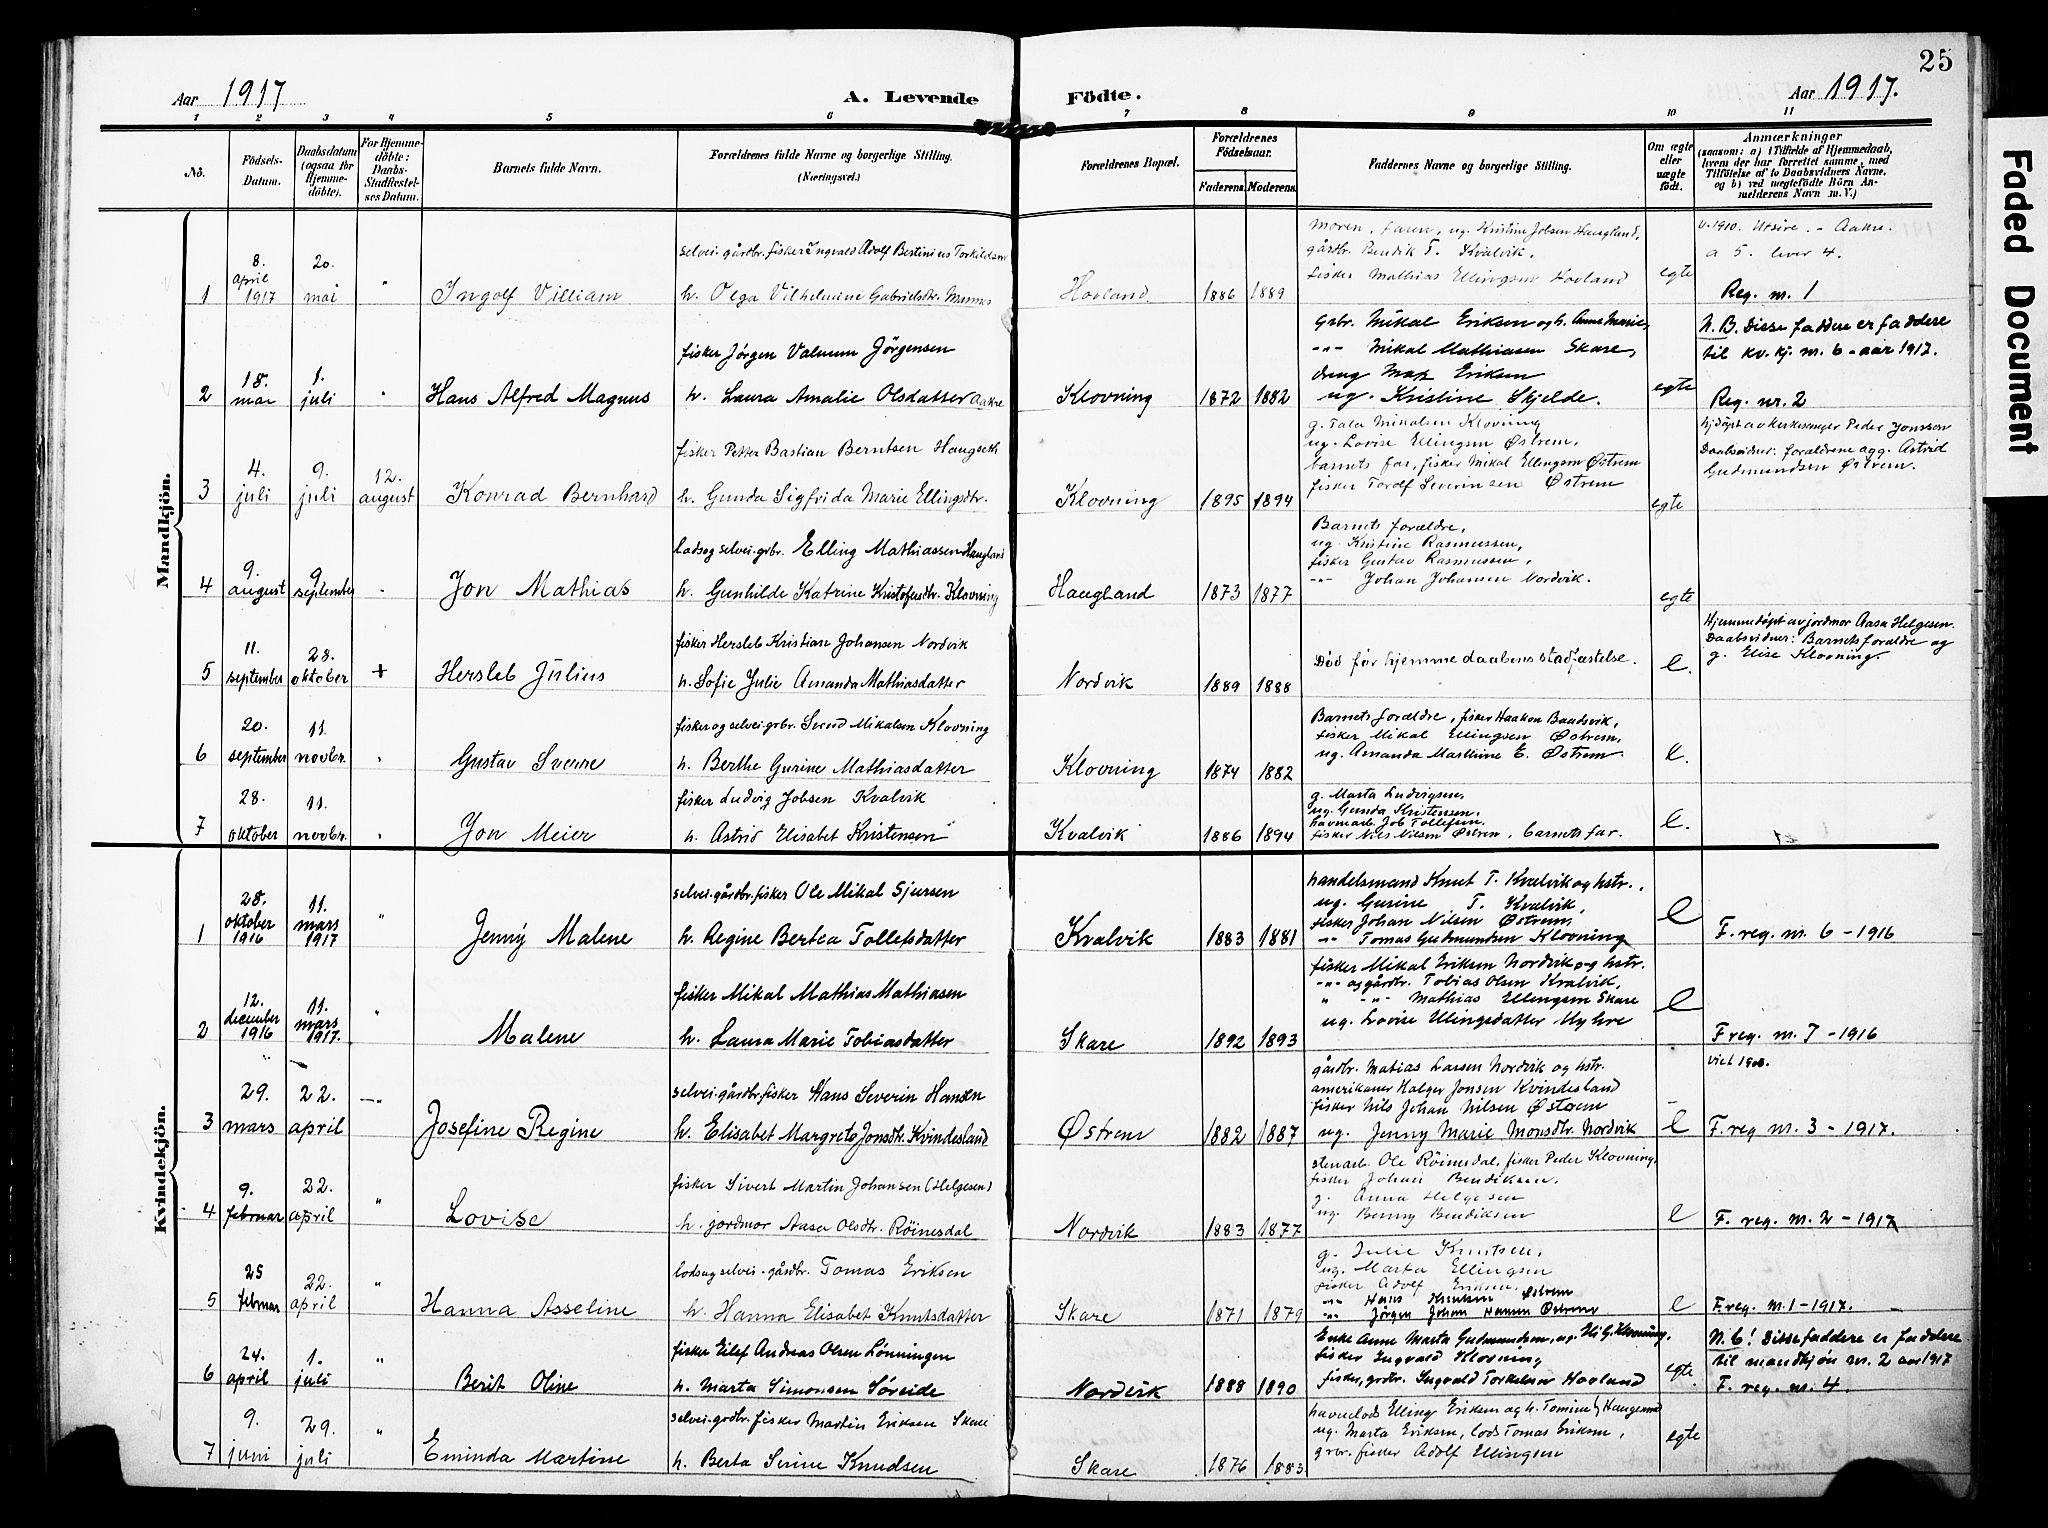 25
Aar 1917
A. Levende Födte.
Aar 1917.
1 2 3 4 5 6 7 8 9 10 11
No.
Födsels-Datum.
Daabsdatum (ogsaa for Hjemmedöbte).
For Hjemmedöbte: Daabs-Stadfæstelses Datum.
Barnets fulde Navn.
Forældrenes fulde Navne og borgerlige Stilling.
(Næringsvei.)
Forældrenes Bopæl.
Forældrenes Födselsaar.
Faderens. Moderens.
Faddernes Navne og borgerlige Stilling.
Om ægte eller uægte födt.
Anmærkninger
(saasom: a) i Tilfælde af Hjemmedaab,
hvem der har forrettet samme, med
Tilföielse af to Daabsvidners Navne,
og b) ved uægtefödte Börn Anmelderens Navn m. V.)
Faded Document
Mandkjön.
1
8. april 1917
20. mai
"
Ingolf Villiam
selvei. gårdbr. fisker Ingvald Adolf Bertinius Torkildsen
h. Olga Vilhelmine Gabrielsdtr. Mannes
Hovland
1886 1889
moren, faren, ug. Kristine Jobsen Haugland,
gårdbr. Bendik T. Kvalvik,
fisker Mathias Ellingsen Hovland
egte
v. 1910. Utsire. - Aakre.
a 5. lever 4.
Reg. nr. 1
2
18. mai
1. juli
"
Hans Alfred Magnus
fisker Jörgen Valnum Jörgensen
h. Laura Amalie Olsdatter Aakre
Klovning
1872 1882
Grbr. Mikal Eriksen og h. Anne Marie,
-"- Mikal Mathiasen Skare,
dreng Max Eriksen
ug. Kristine Skjelde.
egte
N.B. Disse faddere er faddere
til kv.kj. nr. 6 - aar 1917.
Reg. nr. 2
3
4. juli
9. juli
12. august
Konrad Bernhard
fisker Petter Bastian Berntsen Haugseth
h. Gunda Sigfrida Marie Ellingsdtr.
Klovning
1895 1894
g. Tala Mikalsen Klovning
ug. Lovise Ellingsen Østrem,
barnets far, fisker Mikal Ellingsen Østrem
fisker Torolf Severinsen Østrem
egte
hj.døpt av kirkesanger Peder Jonsson
Daabsvidner: forældrene og g. Astrid
Gudmundsen Østrem.
4
9. august
9. september
"
Jon Mathias
Lods og selvei. grbr. Elling Mathiassen Haugland
h. Gunhilde Katrine Kristofersdtr. Klovning
Haugland
1873 1877
Barnets forældre,
ug. Kristine Rasmussen,
fisker Gustav Rasmussen,
-"- Johan Johansen Nordvik.
egte
5
11. september
28. oktober
+
Hersleb Julius
fisker Hersleb Kristian Johansen Nordvik
h. Sofie Julie Amanda Mathiasdatter
Nordvik
1889 1888
Død før hjemmedaabens stadfæstelse.
e.
Hjemmedøpt av jordmor Aasa Helgesen.
Daabsvidner: Barnets forældre og
g. Elise Klovning.
6
20. september
11. novbr.
"
Gustav Sverre
fisker og selvei. grbr. Sverd Mikalsen Klovning
h. Berthe Gurine Mathiasdatter
Klovning
1874 1882
Barnets forældre, fisker Haakon Baadsvik,
fisker Mikal Ellingsen Østrem,
ug. Amanda Marthine E. Østrem.
e.
7
28. oktober
11. novbr.
"
Jon Meier
fisker Ludvig Jobsen Kvalvik
h. Astrid Elisabet Kristensen
Kvalvik
1886 1894
g. Marta Ludvigsen,
ug. Gunda Kristensen,
havnearb. Job Tollefsen.
fisker Nils Nilsen Østrem, barnets far.
e.
Kvindekjön.
1
28. oktober 1916
11. mars 1917
"
Jenny Malene
selvei. gårdbr. fisker Ole Mikal Sjursen
h. Regine Bertea Tollefsdatter
Kvalvik
1883 1881
handelsmand Knut T. Kvalvik og hstr.,
ug. Gurine T. Kvalvik,
fisker Johan Nilsen Østrem,
"- Tomas Gudmundsen Klovning
e
F. reg. nr. 6 - 1916
2
12. december 1916
11. mars 1917.
"
Malene
fisker Mikal Mathias Mathiasen
h. Laura Marie Tobiasdatter
Skare
1892 1893
fisker Mikal Eriksen Nordvik og hstr.
-"- og gårdbr. Tobias Olsen Kvalvik,
" -"- Mathias Ellingsen Skare
ug. Lovise Ellingsdatter Myhre
e
F. reg. nr. 7 - 1916
3
29. mars
22. april
"
Josefine Regine
selvei. gårdbr. fisker Hans Severin Hansen
h. Elisabet Margrete Jonsdtr. Kvindesland
Østrem
1882 1887
gårdbr. Matias Larsen Nordvik og hstr.
amerikaner Holger Jonsen Kvindesland
fisker Nils Johan Nilsen Østrem
ug. Jenny Marie Monsdtr. Nordvik
e
viet 1908.
F. reg nr. 3 - 1917.
4
9. februar
22. april
"
Lovise
fisker Sivert Martin Johansen (Helgesen)
h. jordmor Aasa Olsdtr. Röinesdal
Nordvik
1883 1877
stenarb. Ole Röinesdal, fisker Peder Klovning,
fisker Johan Bendiksen,
g. Anna Helgesen
ug. Benny Bendiksen
e
F. reg. nr. 2 - 1917
5
25 februar
22. april
"
Hanna Asseline
lods og selvei. gårdbr. Tomas Eriksen
h. Hanna Elisabet Knutsdatter
Skare
1871 1879
g. Julie Knutsen,
ug. Marta Ellingsen
fisker Adolf Eriksen,
-"- Hans Knutsen Østrem
-"- Jörgen Johan Hansen Østrem
e
F. reg. nr. 1 - 1917.
6
24. april
1. juli
"
Berit Oline
fisker Eilef Andreas Olsen Lönningen
h. Marta Simonsen Søreide
Nordvik
1888 1890
Enke Anne Marta Gudmundsen, ug. Eli G. Klovning,
fisker Ingvald Klovning
fisker, grdbr. Ingvald Torkelsen Hovland
egte.
N.B! Disse faddere er faddere
til mandkjön nr. 2 aar 1917
F. reg. nr. 4.
7
9. juni
29. juli
"
Eminda Martine
selvei. grdbr. fisker Martin Eriksen Skare
h. Berta Serine Knudsen
Skare
1876 1883
havnelods Elling Eriksen og h. Tomine, Haugesund
ug. Marta Eriksen, lods Tomas Eriksen,
grbr. fisker Adolf Ellingsen
egte